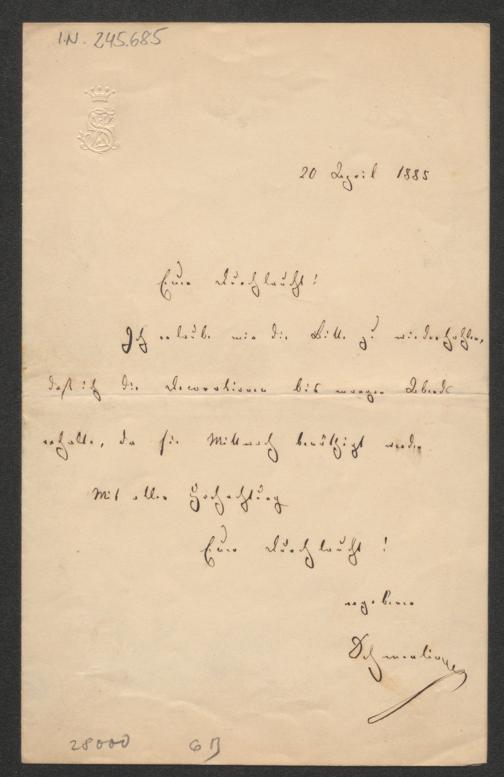 I.N. 245.685
20 April 1885
Euer Durchlaucht!
Ich erlaube mir die Bitte zu wiederhohlen,
daß ich die Decorationen bis morgen Abends
erhalte, da sie Mittwoch benöthigt werden
Mit aller Hochachtung
Euer Durchlaucht!
ergebener
Schmerling
28000 6B